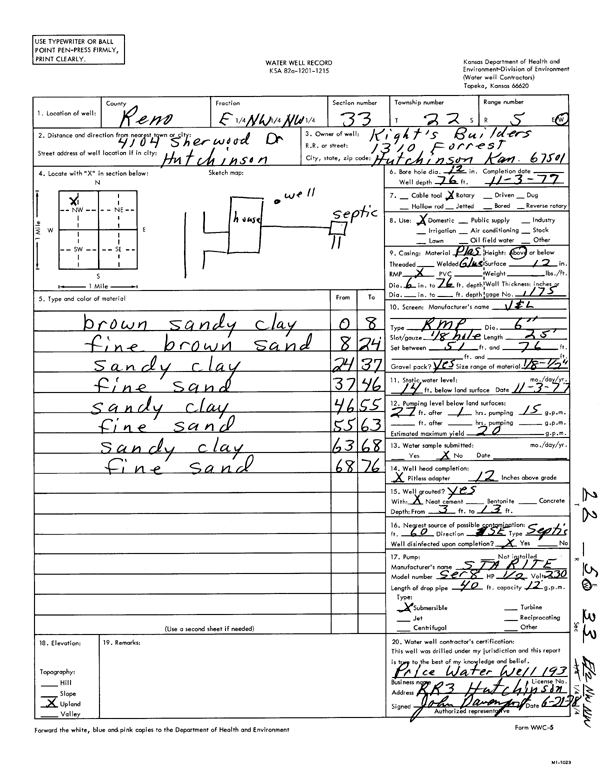 USE TYPEWRITER OR BALL
POINT PEN-PRESS FIRMLY,
PRINT CLEARLY.
WATER WELL RECORD
KSA 82a-1201-1215
Kansas Department of Health and
Environment-Division of Environment
(Water well Contractors)
Topeka, Kansas 66620
1. Location of well: County Reno Fraction E 1/4 NW 1/4 NW 1/4 Section number 33 Township number T 22 S Range number R 5 E/W
2. Distance and direction from nearest town or city: 4104 Sherwood Dr
Street address of well location if in city: Hutchinson
3. Owner of well: Kight's Builders
R.R. or street: 1310 Forrest
City, state, zip code: Hutchinson Kan. 67501
4. Locate with "X" in section below:
Sketch map:
N
X
NW NE
W E
SW SE
S
1 Mile
1 Mile
house
well
septic
6. Bore hole dia. 12 in. Completion date
Well depth 76 ft. 11-3-77
7. Cable tool X Rotary Driven Dug
Hollow rod Jetted Bored Reverse rotary
8. Use: X Domestic Public supply Industry
Irrigation Air conditioning Stock
Lawn Oil field water Other
9. Casing: Material Plas Height: Above or below
Threaded Welded Glue Surface 12 in.
RMP X PVC Weight lbs./ft.
Dia. 6 in. to 76 ft. depth Wall Thickness: inches or
Dia. in. to ft. depth gage No. .175
5. Type and color of material From To
brown sandy clay 0 8
fine brown sand 8 24
sandy clay 24 37
fine sand 37 46
sandy clay 46 55
fine sand 55 63
sandy clay 63 68
fine sand 68 76
(Use a second sheet if needed)
10. Screen: Manufacturer's name V&L
Type RMP Dia. 6"
Slot/gauze 1/8 hole Length 25'
Set between 51 ft. and 76 ft.
ft. and ft.
Gravel pack? yes Size range of material 1/8-1/2"
11. Static water level: mo./day/yr.
14 ft. below land surface Date 11-3-77
12. Pumping level below land surfaces:
27 ft. after 1 hrs. pumping 15 g.p.m.
ft. after hrs. pumping g.p.m.
Estimated maximum yield 20 g.p.m.
13. Water sample submitted: mo./day/yr.
Yes X No Date
14. Well head completion:
X Pitless adapter 12 Inches above grade
15. Well grouted? yes
With: X Neat cement Bentonite Concrete
Depth: From 3 ft. to 13 ft.
16. Nearest source of possible contamination:
ft. 60 Direction SE Type Septic
Well disinfected upon completion? X Yes No
17. Pump: Not installed
Manufacturer's name STA RITE
Model number Ser 8 HP 1/2 Volts 230
Length of drop pipe 40 ft. capacity 12 g.p.m.
Type:
X Submersible Turbine
Jet Reciprocating
Centrifugal Other
18. Elevation:
Topography:
Hill
Slope
X Upland
Valley
19. Remarks:
20. Water well contractor's certification:
This well was drilled under my jurisdiction and this report
is true to the best of my knowledge and belief.
Price Water Well 193
Business name License No.
Address RR3 Hutchinson
Signed John Davenport Date 6-21-78
Authorized representative
Forward the white, blue and pink copies to the Department of Health and Environment
Form WWC-5
22 - 5 W 33 E/2 NW NW
T R Sec 1/4 1/4 1/4